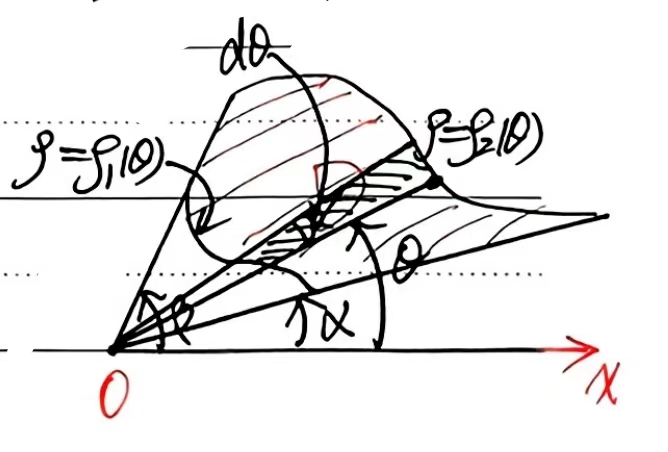 dθ
ρ=ρ₁(θ)
ρ=ρ₂(θ)
θ
β
α
O
x